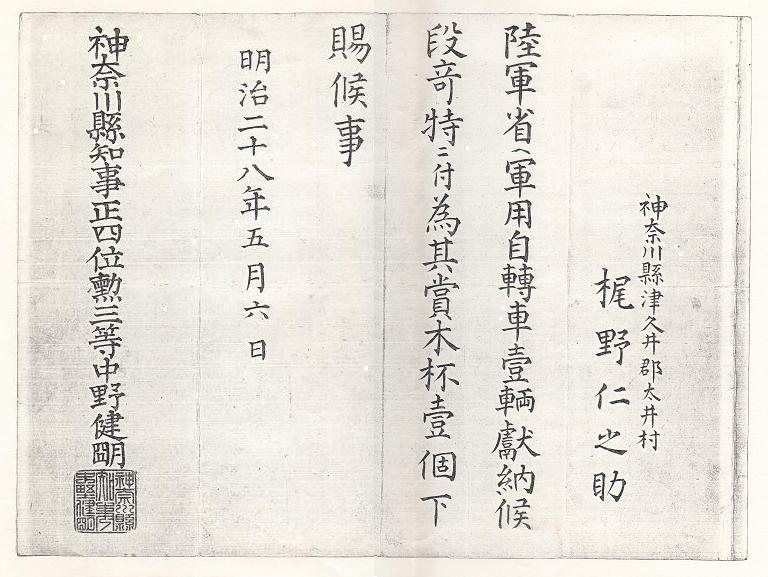 神奈川縣津久井郡太井村
梶野仁之助
陸軍省ヘ軍用自轉車壹輌獻納候
段竒特ニ付為其賞木杯壹個下
賜候事
明治二十八年五月六日
神奈川縣知事正四位勲三等中野健明